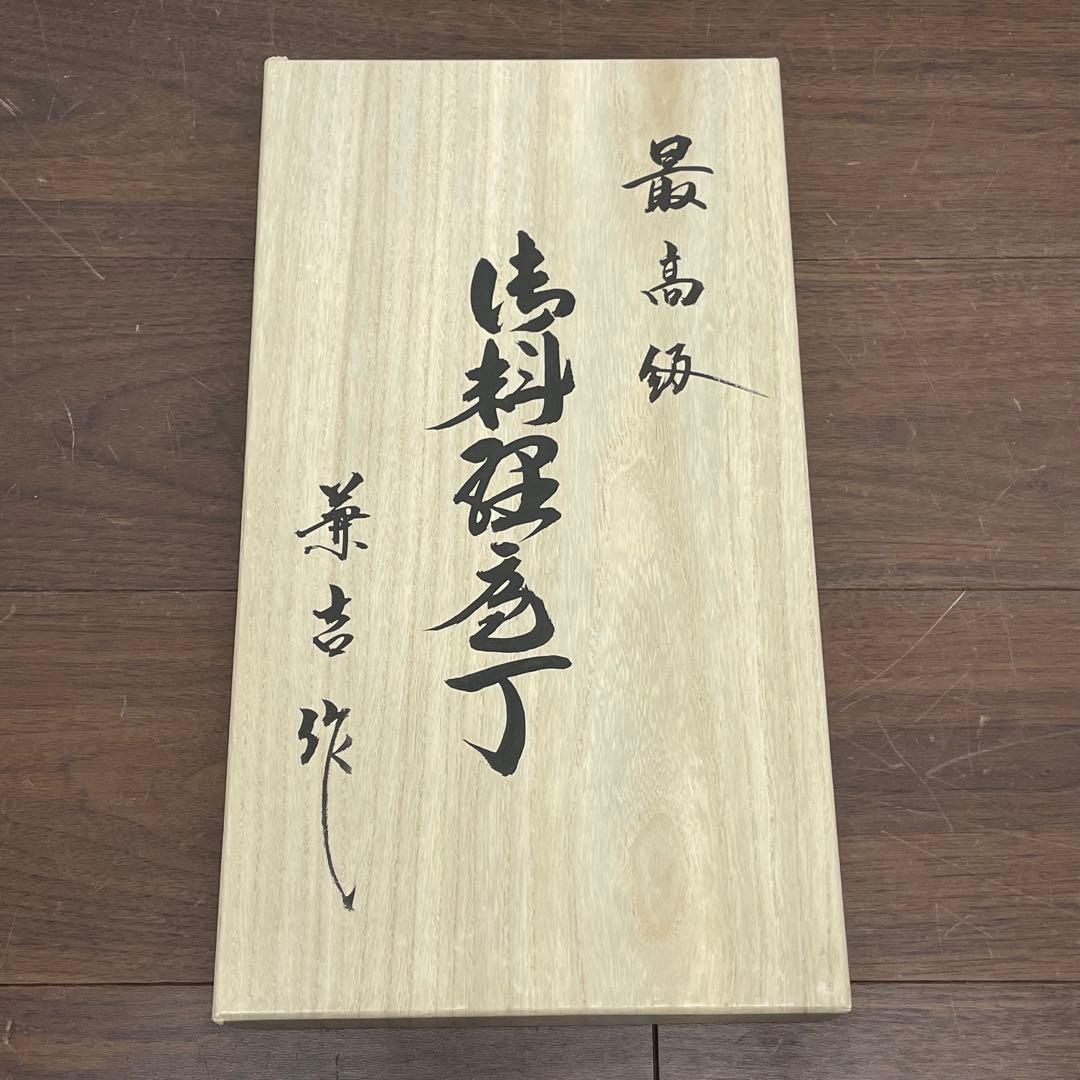 最高級
御料理庖丁
兼吉作